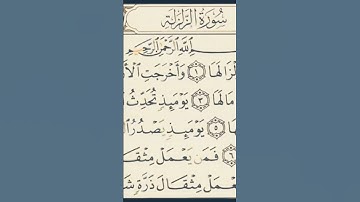 سُورَةُ الزَّلْزَلَةِ
ـمِ اللَّهِ الرَّحْمَٰنِ الرَّحِيمِ
لْزَالَهَا ١ وَأَخْرَجَتِ الْأَ
مَالَهَا ٣ يَوْمَئِذٍ تُحَدِّثُ أَ
هَا ٥ يَوْمَئِذٍ يَصْدُرُ ال
٦ فَمَن يَعْمَلْ مِثْقَا
عْمَلْ مِثْقَالَ ذَرَّةٍ شَ